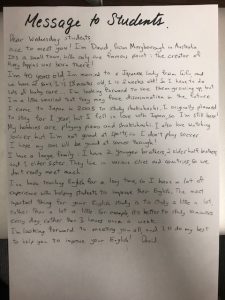 Message to Students
Dear Wednesday students,
Nice to meet you! I'm David, from Maryborough in Australia
It's a small town with only one famous point: the creator of
Mary Poppins was born there!
I'm 40 years old. I'm married to a Japanese lady from Gifu and
we have a son, is 18 months old is 2 weeks old! So I have to do
lots of baby care! I'm looking forward to see them growing up but
I'm a little worried that they may face discrimination in the future.
I came to Japan in 2005 to study shakuhachi. I originally planned
to stay for 1 year but I fell in love with Japan, so I'm still here!
My hobbies are playing piano and shakuhachi. I also like watching
soccer but I'm not good at sports so I don't play soccer.
I hope my son will be good at soccer though!
I have a large family. I have 2 younger brothers, 2 older half brothers
and 1 older sister. They live in various cities and countries so we
don't really meet much.
I've been teaching English for a long time, so I have a lot of
experience with helping students to improve their English. The most
important thing for your English study is to study a little a lot,
rather than a lot a little. For example it's better to study 10 minutes
every day rather than 2 hours once a week.
I'm looking forward to meeting you all, and I'll do my best
to help you to improve your English! David